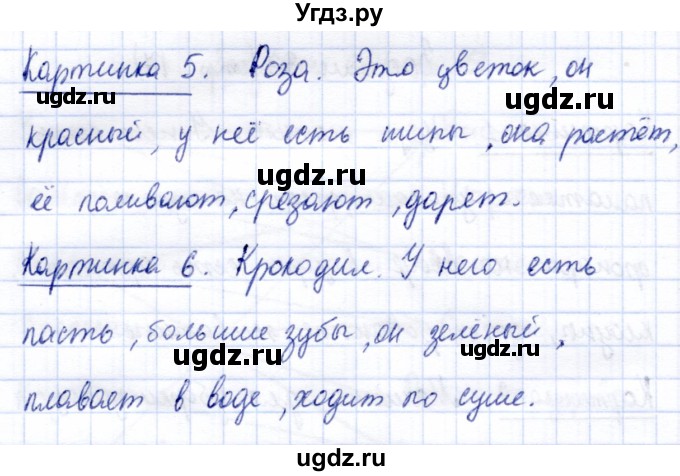 Угдз.ру
Картинка 5. Роза. Это цветок, он
ugdz.ru ugdz.ru
красный, у неё есть шипы, она растёт,
ugdz.ru
её поливают, срезают, дарят.
ugdz.ru
Картинка 6. Крокодил. У него есть
пасть, большие зубы, он зелёный,
ugdz.ru ugdz.ru
плавает в воде, ходит по суше.
ugdz.ru